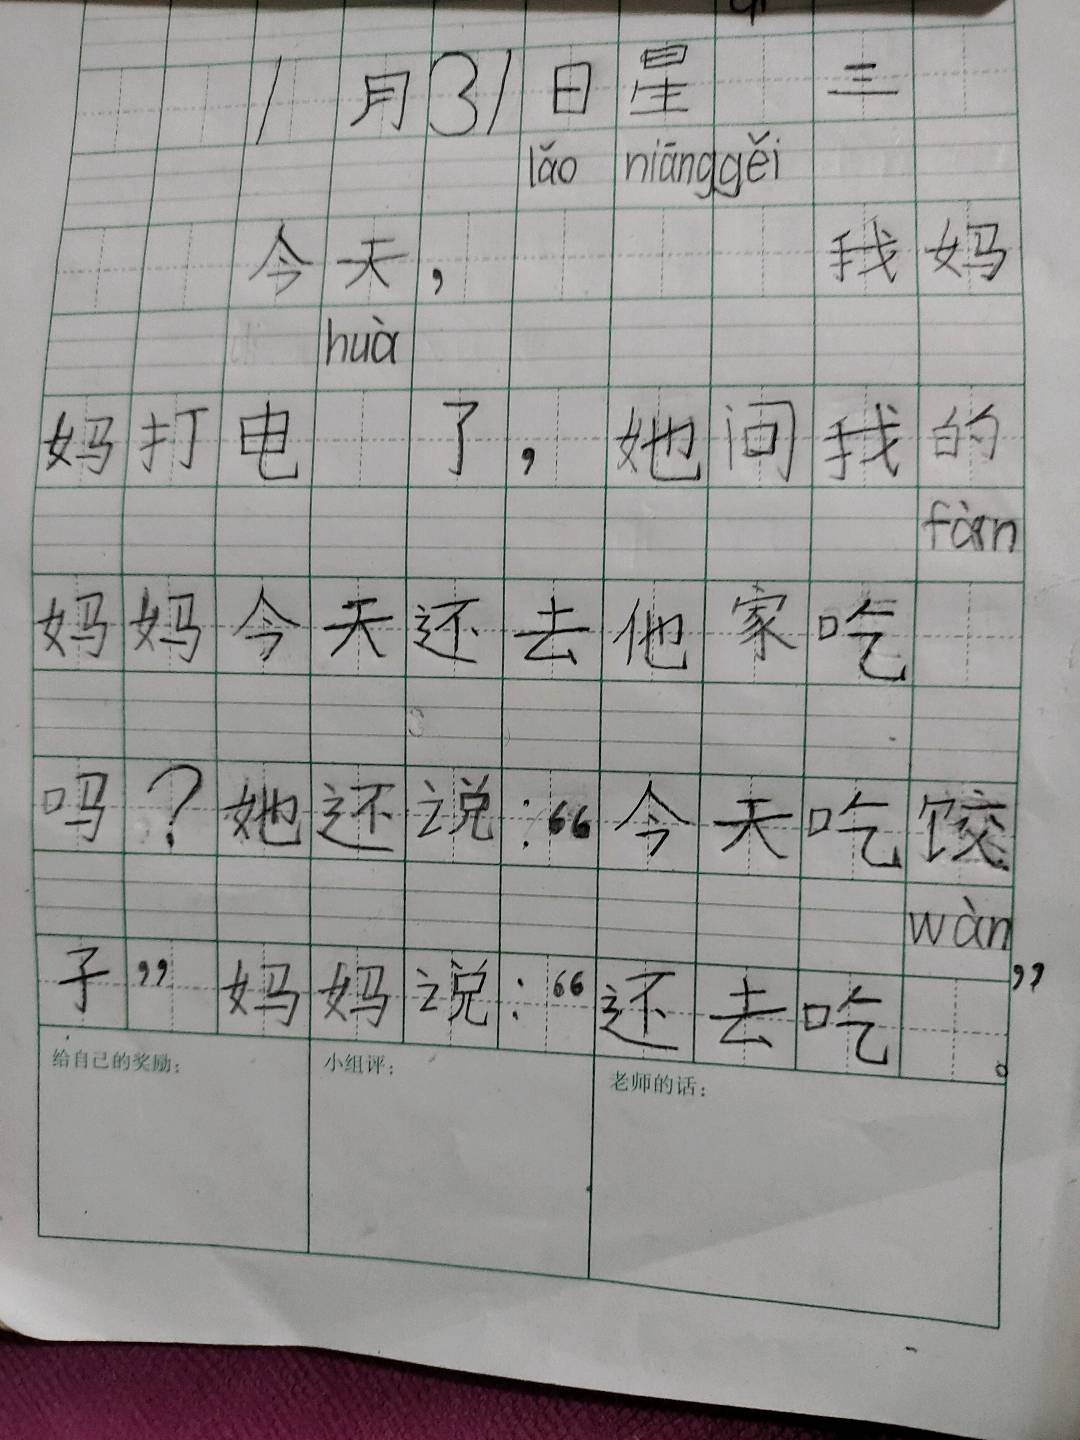 qī
1月31日星 三
lǎo niānggěi
今天, 我妈
huà
妈打电 了,她问我的
fàn
妈妈今天还去他家吃
吗?她还说:“今天吃饺
wàn
子”妈妈说:“还去吃 。”
给自己的奖励:
小组评:
老师的话: